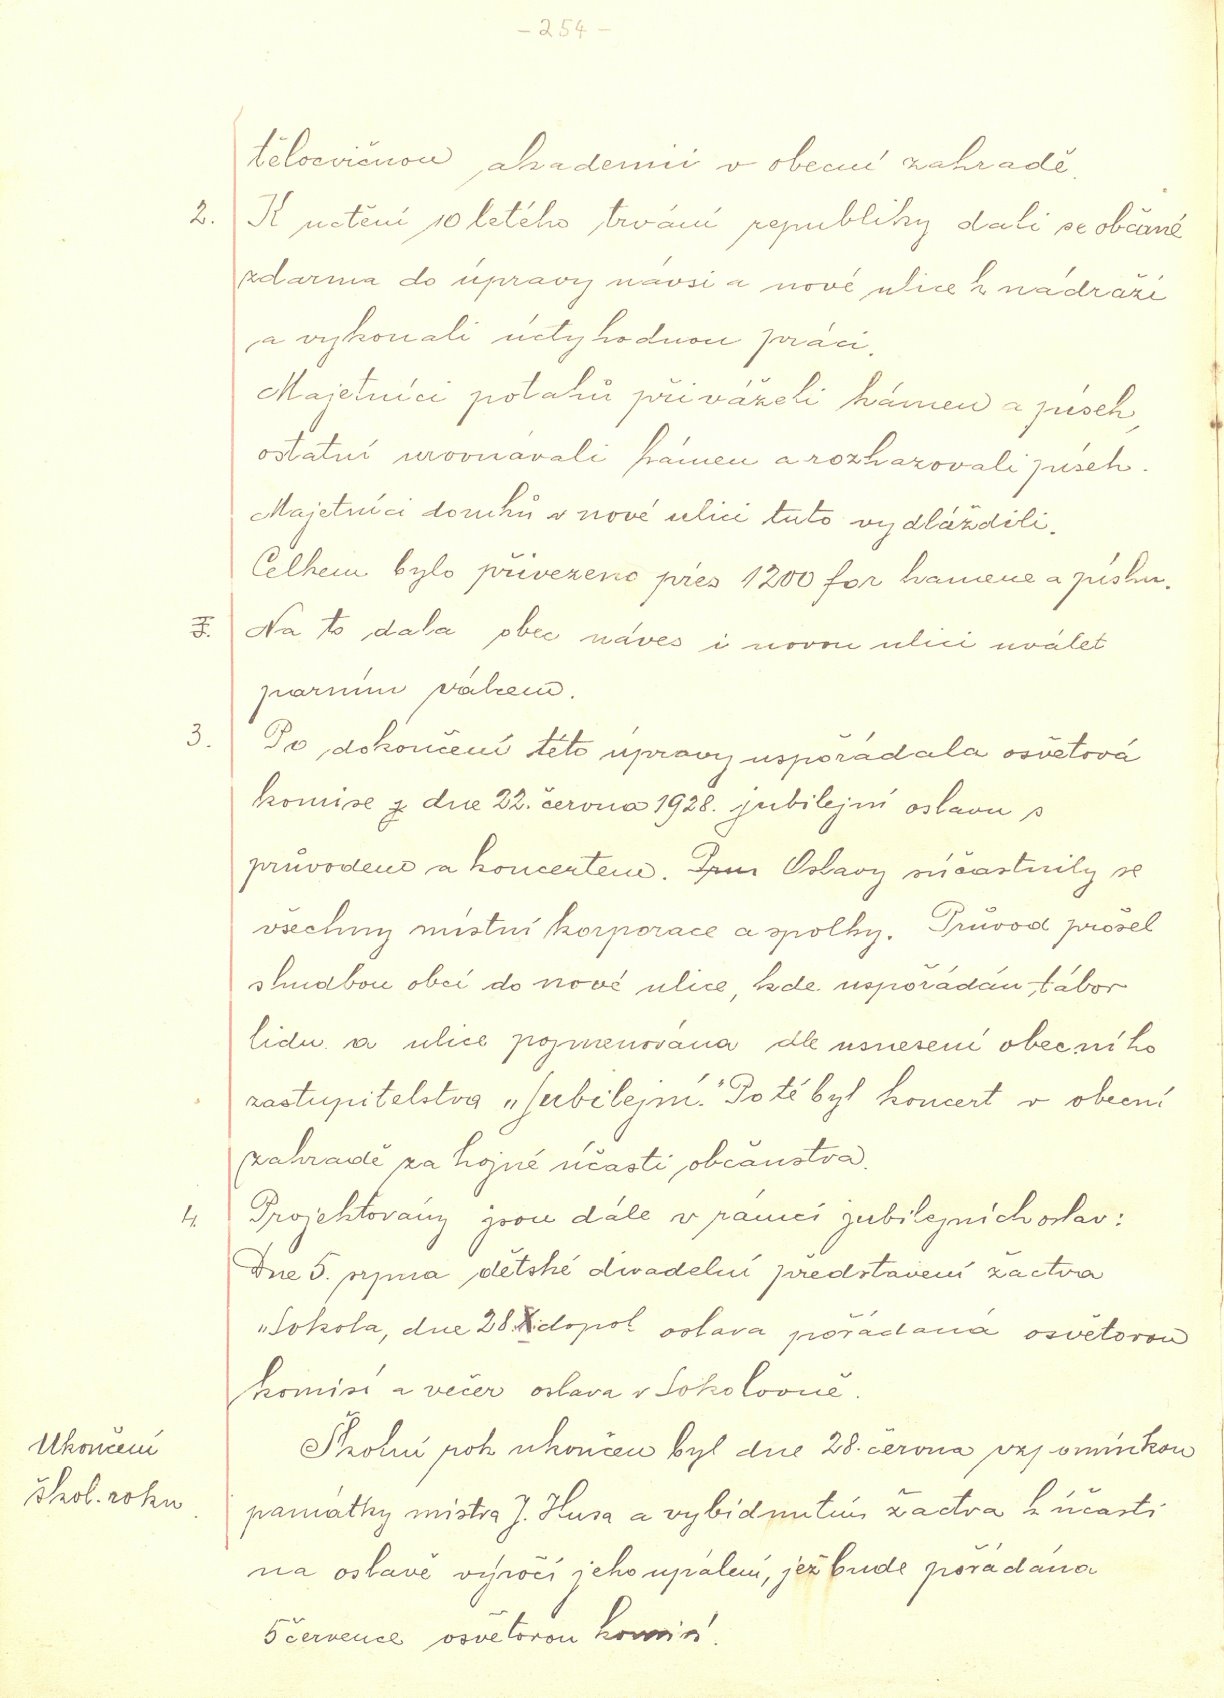 - 254 -
tělocvičnou akademii v obecní zahradě.
2. K uctění 10 letého trvání republiky dali se občané
zdarma do úpravy návsi a nové ulice k nádraží
a vykonali úctyhodnou práci.
Majetníci potahů přiváželi kámen a písek,
ostatní urovnávali kámen a rozhazovali písek.
Majetníci domků v nové ulici tuto vydláždili.
Celkem bylo přivezeno přes 1200 for kamene a písku.
Na to dala obec náves i novou ulici uválet
parním válcem.
3. Po dokončení této úpravy uspořádala osvětová
komise dne 22. června 1928. jubilejní oslavu s
průvodem a koncertem. Oslavy súčastnily se
všechny místní korporace a spolky. Průvod prošel
s hudbou obcí do nové ulice, kde uspořádán tábor
lidu a ulice pojmenována dle usnesení obecního
zastupitelstva „Jubilejní." Poté byl koncert v obecní
zahradě za hojné účasti občanstva.
4. Projektovány jsou dále v rámci jubilejních oslav:
Dne 5. srpna dětské divadelní představení žactva
„Sokola, dne 28. X. dopol. oslava pořádaná osvětovou
komisí a večer oslava v Sokolovně.
Ukončení
škol. roku.
Školní rok ukončen byl dne 28. června vzpomínkou
památky mistra J. Husa a vybídnutím žactva k účasti
na oslavě výročí jeho upálení, jež bude pořádána
5 července osvětovou komisí.